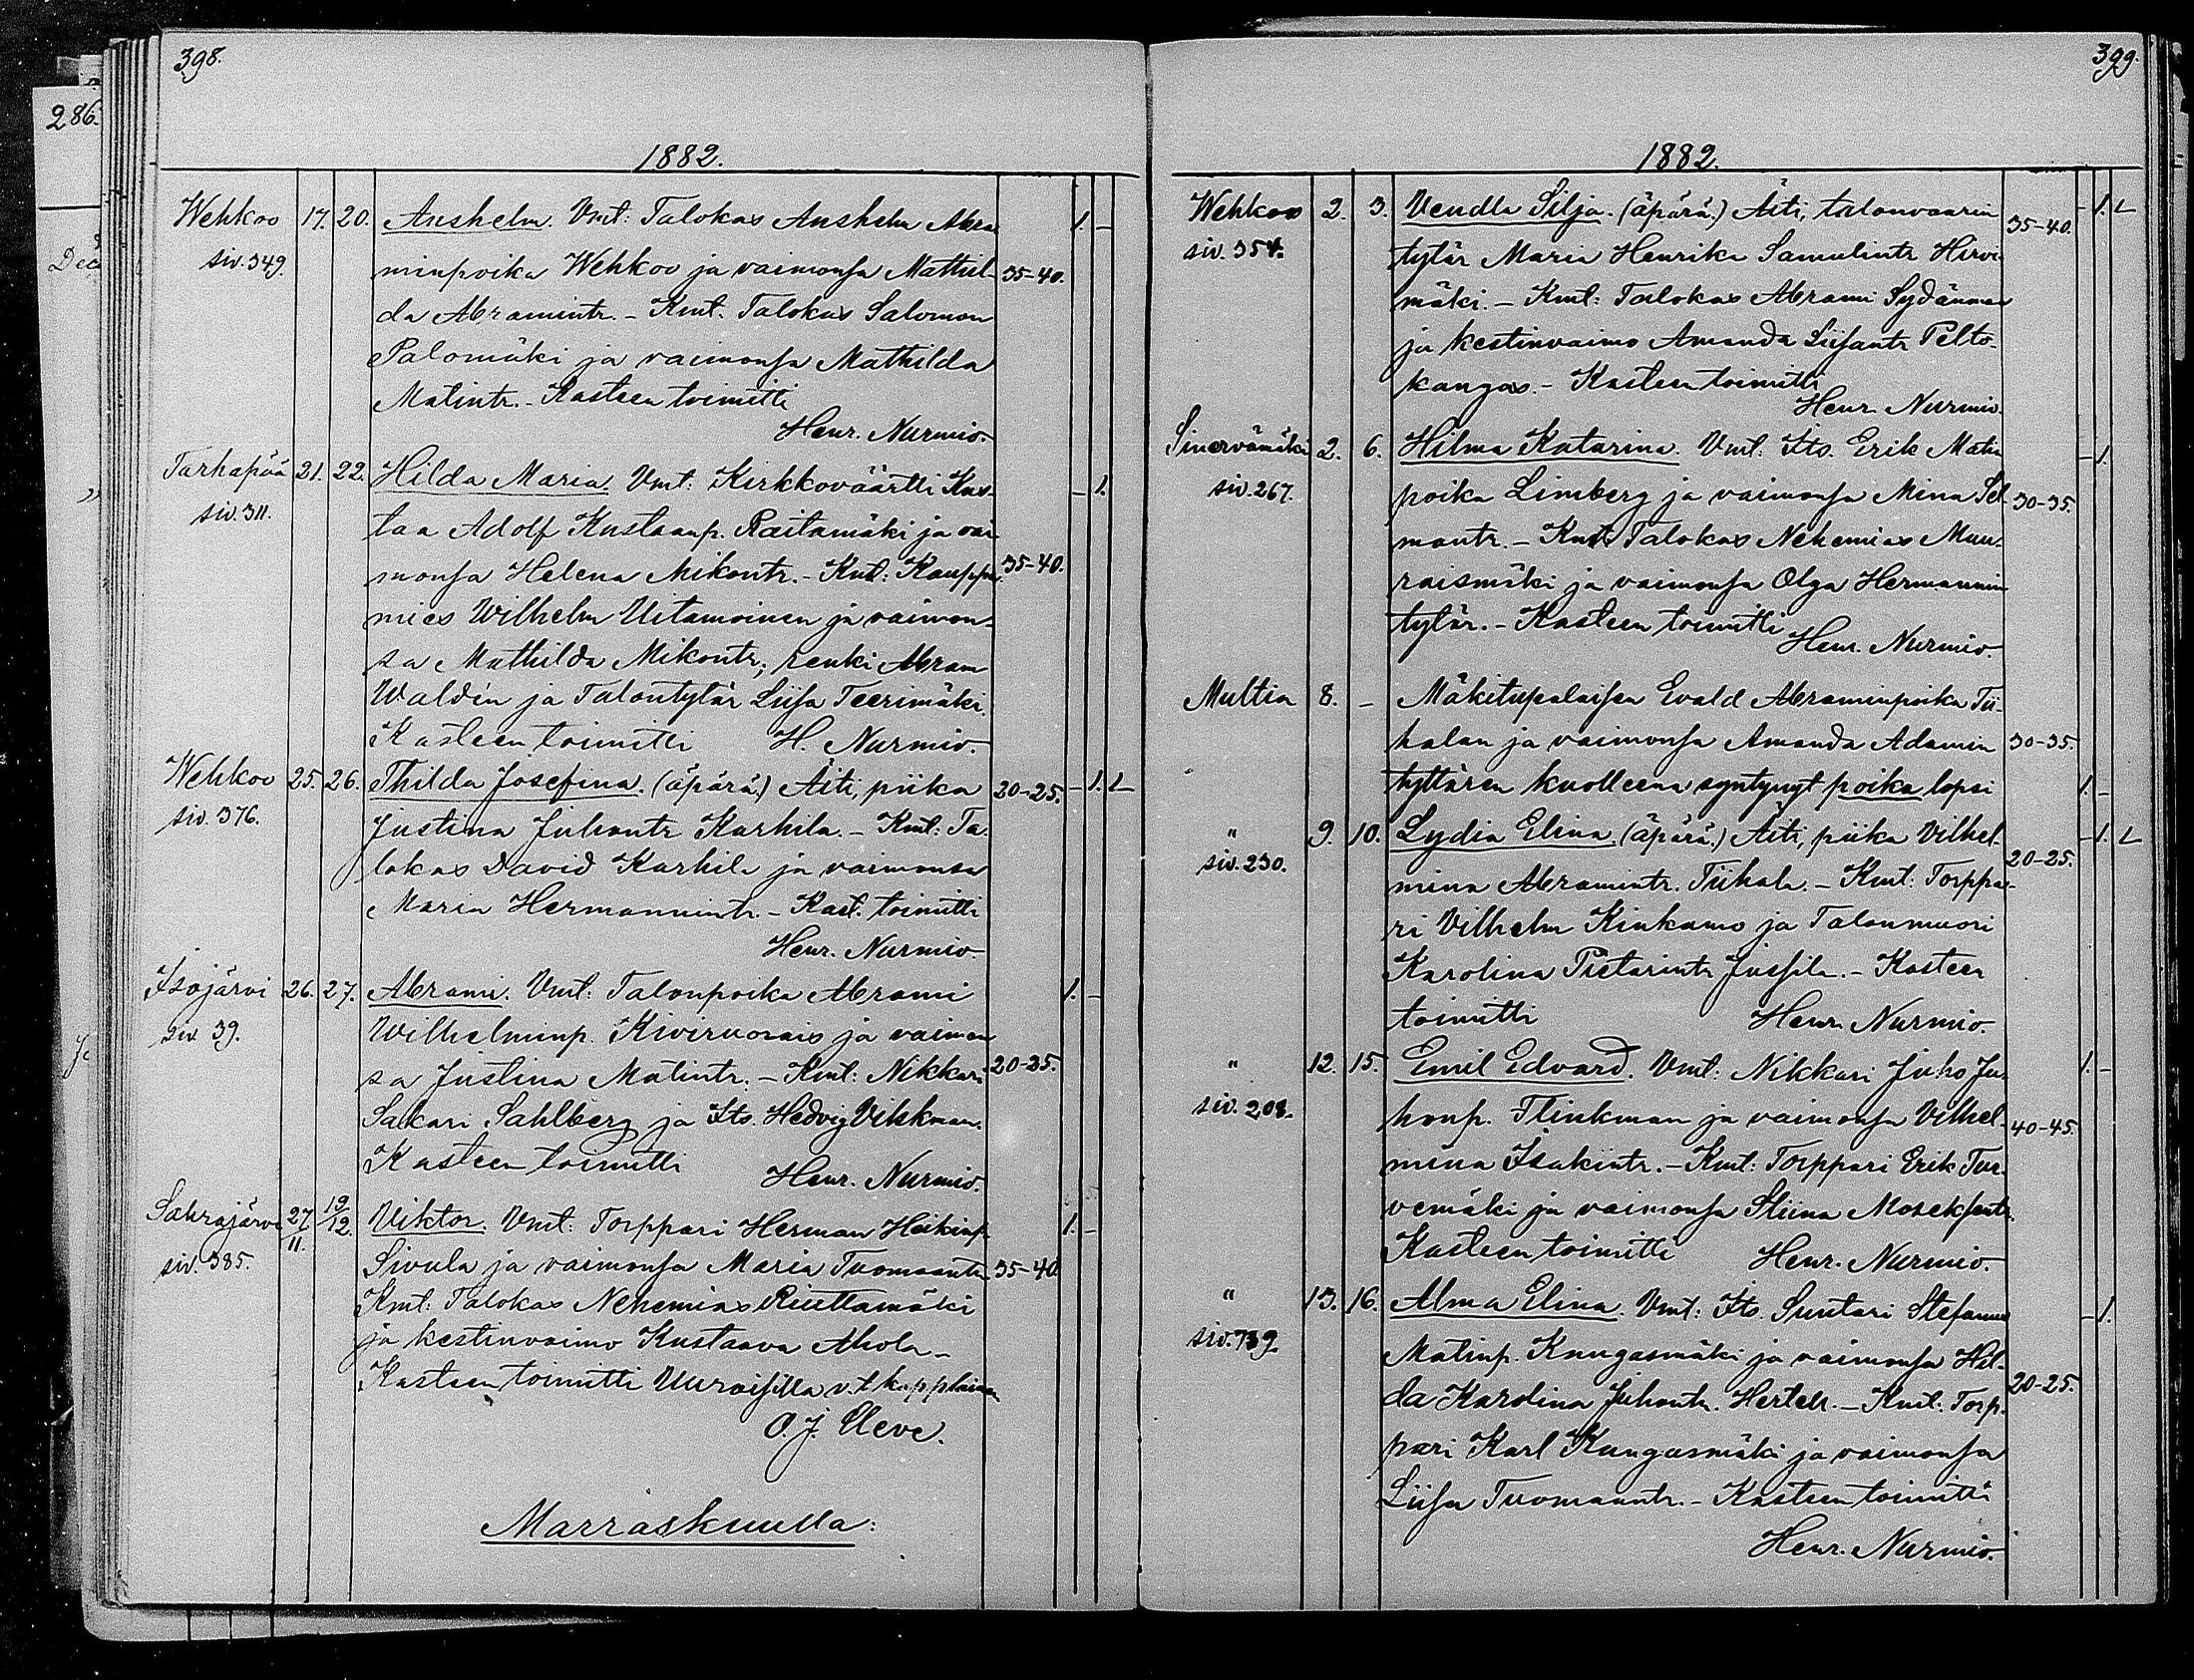 398.
286.
1882.
Wehkoo 17. 20. Anshelm. Vmt: Talokas Anshelm Abra 1. –
siv. 349. minpoika Wehkoo ja vaimonsa Mathil- 35-40.
da Abramintr. – Kmt. Talokas Salomon
Palomäki ja vaimonsa Mathilda
Matintr. – Kasteen toimitti
Henr. Nurmio.
Tarhapää 21. 22. Hilda Maria. Vmt: Kirkkoväärtti Kus- – 1.
siv. 311. taa Adolf Kustaanp. Raitamäki ja vai-
monsa Helena Mikontr. – Kmt: Kauppa 35-40.
mies Wilhelm Uitamoinen ja vaimon-
sa Mathilda Mikontr; renki Abram
Waldén ja Talontytär Liisa Teerimäki.
Kasteen toimitti H. Nurmio.
Wehkoo 25. 26. Thilda Josefina. (äpärä.) Äiti, piika 20-25. – 1. L
siv. 376. Justina Juhontr Karhila. – Kmt: Ta
lokas David Karhila ja vaimonsa
Maria Hermannintr. – Kast. toimitti
Henr. Nurmio.
Isojärvi 26. 27. Abrami. Vmt: Talonpoika Abrami 1. –
siv 39. Wilhelminp. Kiviruorais ja vaimon
sa Justina Matintr. – Kmt: Nikkari 20-25.
Sakari Sahlberg ja Its. Hedvig Vilskman.
Kasteen toimitti Henr. Nurmio.
Sahrajärvi 27/11. 19/12. Viktor. Vmt: Torppari Herman Heikinp. 1. –
siv. 385. Sivula ja vaimonsa Maria Tuomaantr. 35-40
Kmt: Talokas Nehemias Riuttamäki
ja kestinvaimo Kustaava Ahola –
Kasteen toimitti Uuraisilla v.t kapplainen
O. J. Cleve.
Marraskuulla:
399.
1882.
Wehkoo 2. 3. Vendla Silja. (äpärä.) Äiti, talonvaarin 35-40. – 1. L
siv. 354. tytär Maria Henrika Samulintr Hirvi-
mäki. – Kmt: Talokas Abrami Sydänmaa
ja kestinvaimo Amanda Liisantr Pelto-
kangas. – Kasteen toimitti
Henr Nurmio.
Sinervämäki 2. 6. Hilma Katarina. Vmt: Its. Erik Matin – 1.
siv. 267. poika Limberg ja vaimonsa Mina Sel- 30-35.
montr. – Kmt: Talokas Nehemias Muu-
raismäki ja vaimonsa Olga Hermannin
tytär. – Kasteen toimitti
Henr. Nurmio.
Multia 8. – Mäkitupalaisen Evald Abraminpoika Tii-
halan ja vaimonsa Amanda Adamin 30-35.
tyttären kuolleena syntynyt poika lapsi 1. –
" 9. 10. Lydia Elina. (äpärä.) Äiti, piika Vilhel- – 1. L
siv. 230. mina Abramintr. Tiihala. – Kmt: Torppa- 20-25.
ri Vilhelm Kinkamo ja Talonmuori
Karolina Pietarintr Jussila. – Kasteen
toimitti Henr. Nurmio.
" 12. 15. Emil Edvard. Vmt: Nikkari Juho Ju- 1. –
siv. 208. honp. Flinkman ja vaimonsa Vilhel- 40-45.
mina Isakintr. – Kmt: Torppari Erik Tur-
vemäki ja vaimonsa Stiina Moseksentr.
Kasteen toimitti Henr. Nurmio.
" 13. 16. Alma Elina. Vmt: Its. Suutari Stefanus – 1.
siv. 739. Matinp. Kangasmäki ja vaimonsa Hil-
da Karolina Juhontr. Hertell. – Kmt: Torp- 20-25.
pari Karl Kangasmäki ja vaimonsa
Liisa Tuomaantr. – Kasteen toimitti
Henr. Nurmio.